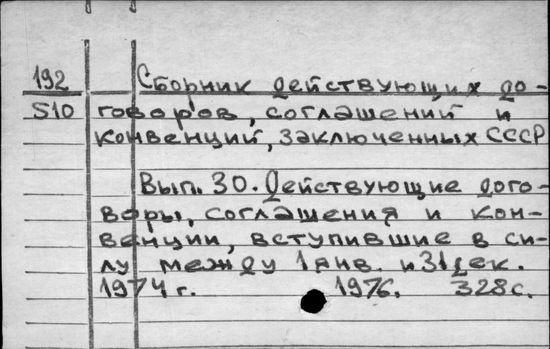 192 Сборник действующих до-
S10 говоров, соглашений и
конвенций, заключенных СССР
Вып. 30. Действующие дого-
воры, соглашения и кон-
венции, вступившие в си-
лу между 1 янв. и 31 дек.
1974 г. 1976. 328 с.